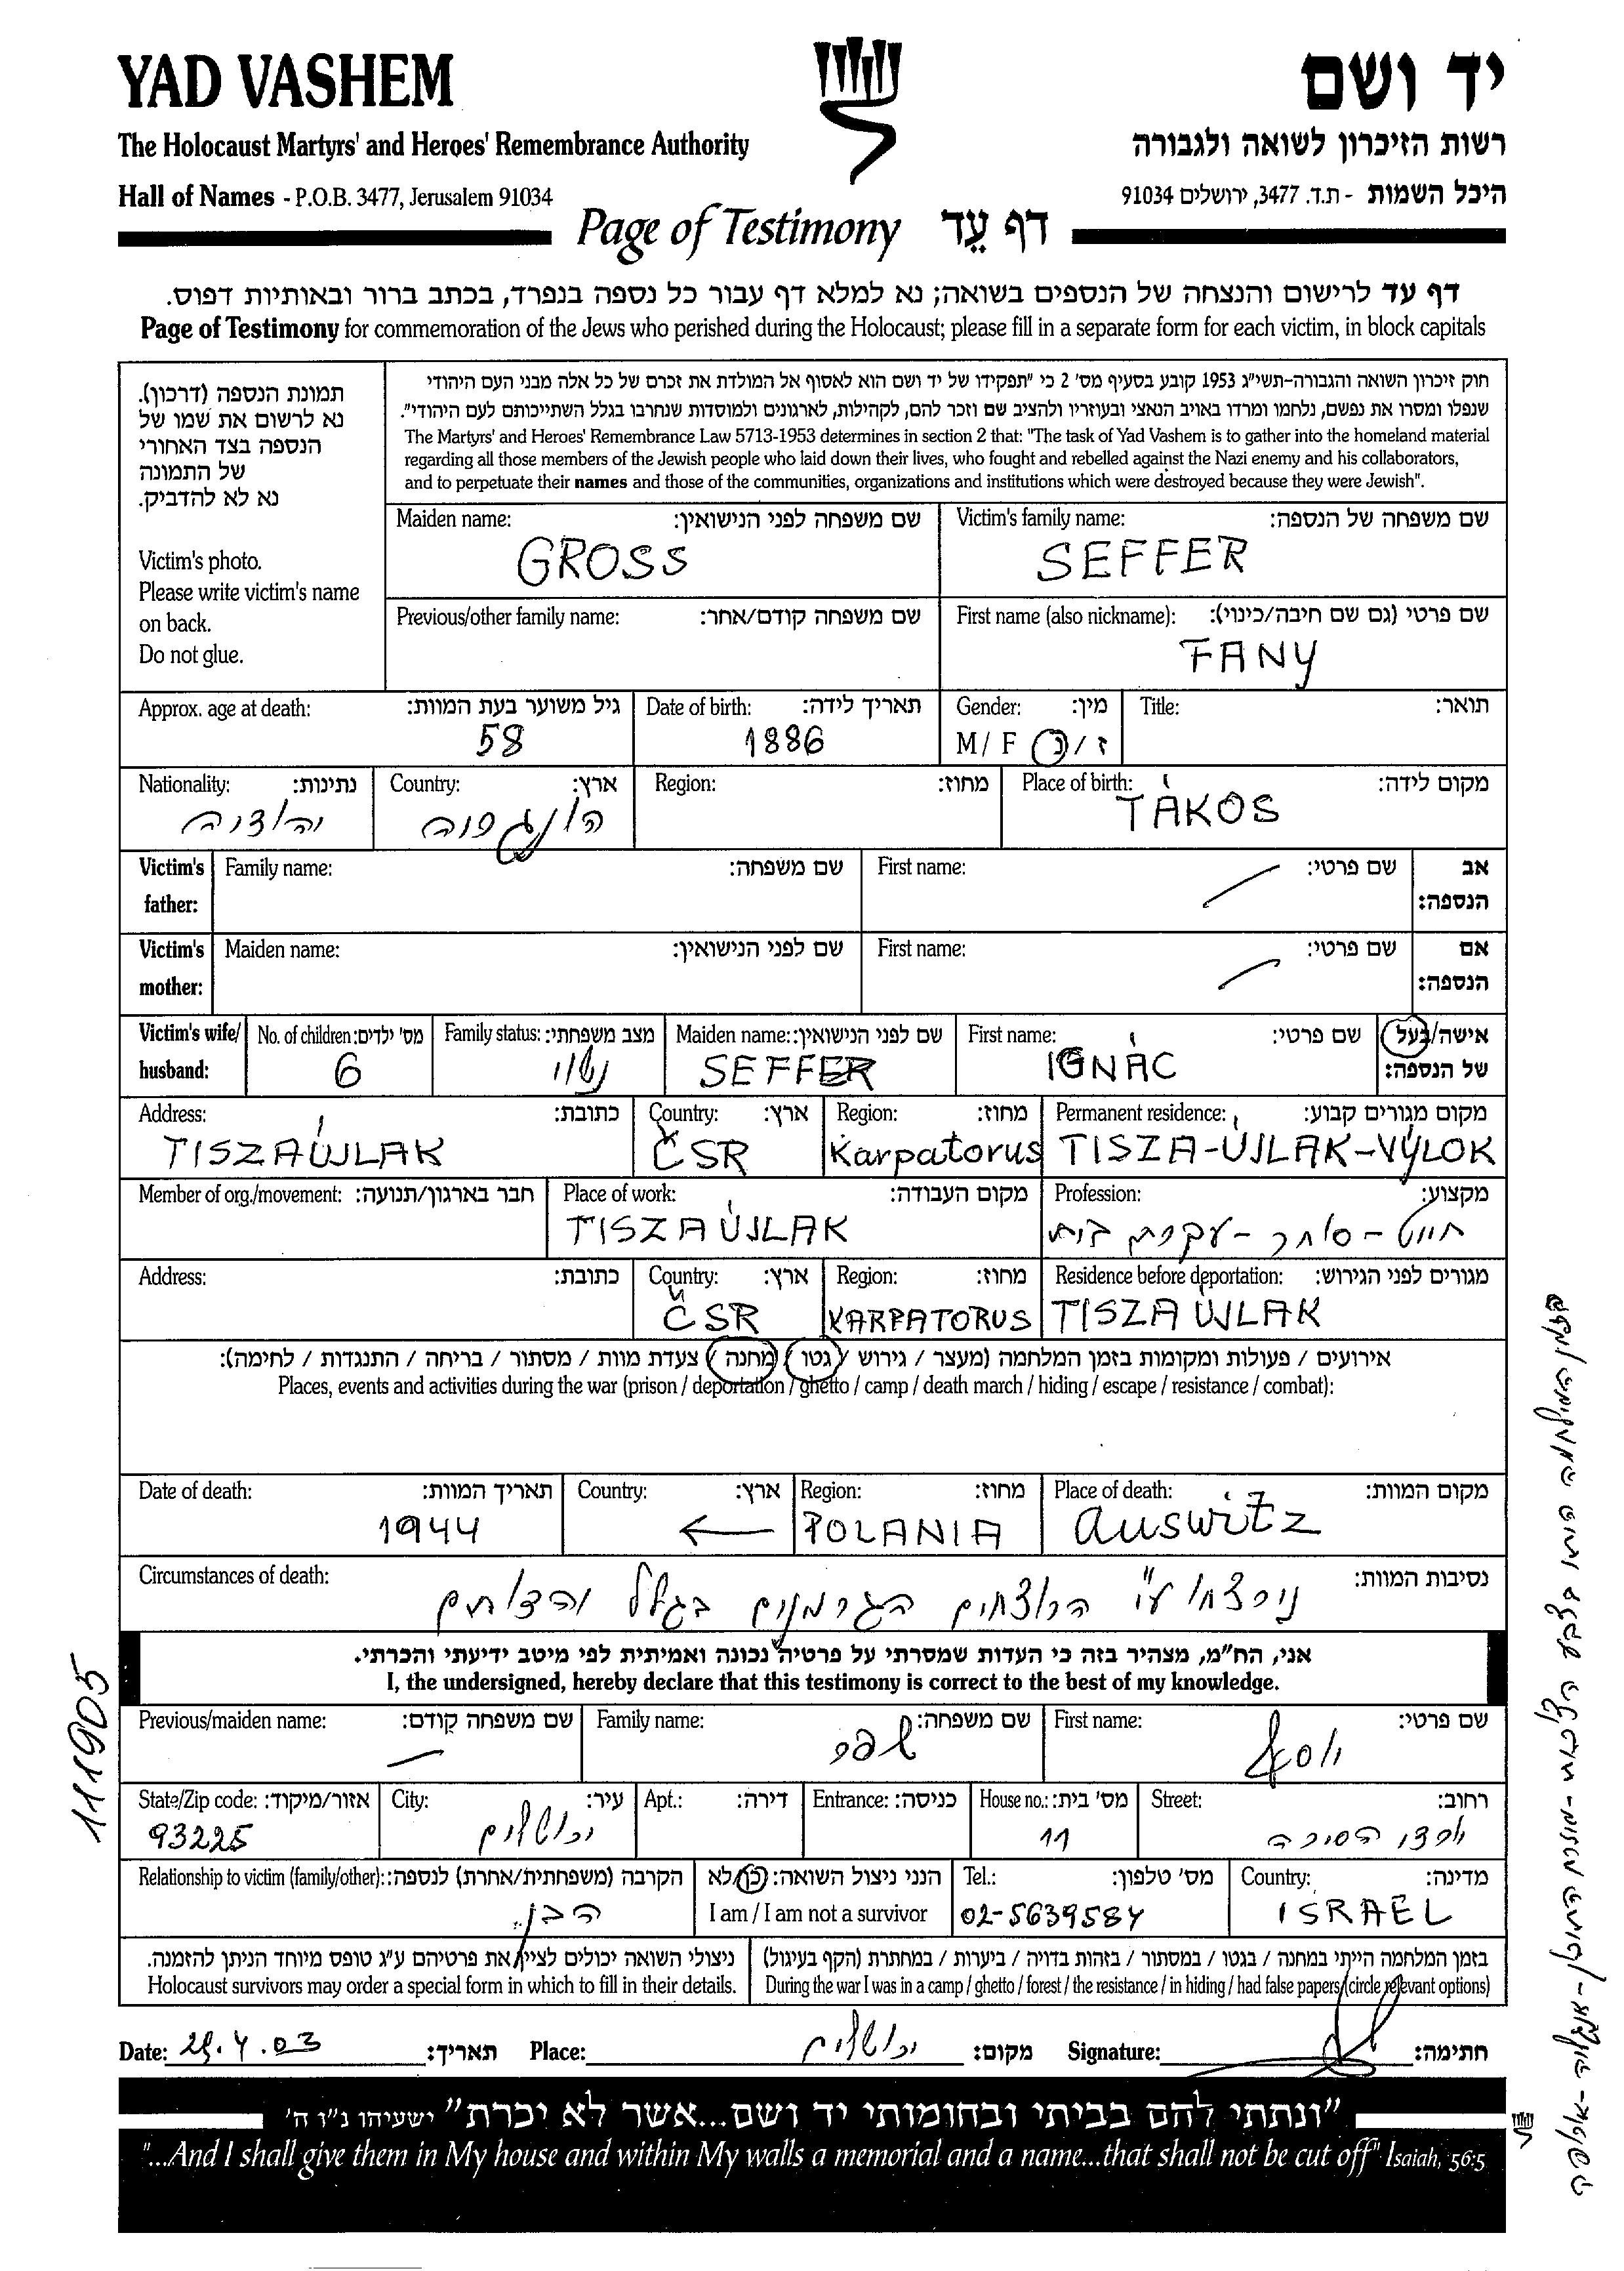 YAD VASHEM
יד ושם
The Holocaust Martyrs' and Heroes' Remembrance Authority
רשות הזיכרון לשואה ולגבורה
Hall of Names - P.O.B. 3477, Jerusalem 91034
היכל השמות - ת.ד. 3477, ירושלים 91034
Page of Testimony דף עֵד
דף עד לרישום והנצחה של הנספים בשואה; נא למלא דף עבור כל נספה בנפרד, בכתב ברור ובאותיות דפוס.
Page of Testimony for commemoration of the Jews who perished during the Holocaust; please fill in a separate form for each victim, in block capitals
תמונת הנספה (דרכון).
נא לרשום את שמו של
הנספה בצד האחורי
של התמונה
נא לא להדביק.
Victim's photo.
Please write victim's name
on back.
Do not glue.
חוק זיכרון השואה והגבורה-תשי"ג 1953 קובע בסעיף מס' 2 כי "תפקידו של יד ושם הוא לאסוף אל המולדת את זכרם של כל אלה מבני העם היהודי
שנפלו ומסרו את נפשם, נלחמו ומרדו באויב הנאצי ובעוזריו ולהציב שם וזכר להם, לקהילות, לארגונים ולמוסדות שנחרבו בגלל השתייכותם לעם היהודי".
The Martyrs' and Heroes' Remembrance Law 5713-1953 determines in section 2 that: "The task of Yad Vashem is to gather into the homeland material
regarding all those members of the Jewish people who laid down their lives, who fought and rebelled against the Nazi enemy and his collaborators,
and to perpetuate their names and those of the communities, organizations and institutions which were destroyed because they were Jewish".
Maiden name: שם משפחה לפני הנישואין:
GROSS
Victim's family name: שם משפחה של הנספה:
SEFFER
Previous/other family name: שם משפחה קודם/אחר:
First name (also nickname): שם פרטי (גם שם חיבה/כינוי):
FANY
Approx. age at death: גיל משוער בעת המוות:
58
Date of birth: תאריך לידה:
1886
Gender: מין:
M / F ז / נ
Title: תואר:
Nationality: נתינות:
יהודיה
Country: ארץ:
הונגריה
Region: מחוז:
Place of birth: מקום לידה:
TÁKOS
Victim's father: Family name: שם משפחה: First name: שם פרטי: אב הנספה:
Victim's mother: Maiden name: שם לפני הנישואין: First name: שם פרטי: אם הנספה:
Victim's wife/ husband:
No. of children: מס' ילדים:
6
Family status: מצב משפחתי:
נשוי
Maiden name: שם לפני הנישואין:
SEFFER
First name: שם פרטי:
IGNÁC
אישה/בעל של הנספה:
Address: כתובת:
TISZAÚJLAK
Country: ארץ:
ČSR
Region: מחוז:
Karpatorus
Permanent residence: מקום מגורים קבוע:
TISZA-ÚJLAK-VÝLOK
Member of org./movement: חבר בארגון/תנועה:
Place of work: מקום העבודה:
TISZA ÚJLAK
Profession: מקצוע:
חייט - סוחר - עקרת בית
Address: כתובת:
Country: ארץ:
ČSR
Region: מחוז:
KARPATORUS
Residence before deportation: מגורים לפני הגירוש:
TISZA ÚJLAK
אירועים / פעולות ומקומות בזמן המלחמה (מעצר / גירוש / גטו / מחנה / צעדת מוות / מסתור / בריחה / התנגדות / לחימה):
Places, events and activities during the war (prison / deportation / ghetto / camp / death march / hiding / escape / resistance / combat):
Date of death: תאריך המוות:
1944
Country: ארץ:
←
Region: מחוז:
POLANIA
Place of death: מקום המוות:
Auswitz
Circumstances of death: נסיבות המוות:
נירצחו ע"י הרוצחים הגרמנים בגלל יהדותם
אני, הח"מ, מצהיר בזה כי העדות שמסרתי על פרטיה נכונה ואמיתית לפי מיטב ידיעתי והכרתי.
I, the undersigned, hereby declare that this testimony is correct to the best of my knowledge.
Previous/maiden name: שם משפחה קודם:
Family name: שם משפחה:
שפר
First name: שם פרטי:
יוסף
State/Zip code: אזור/מיקוד:
93225
City: עיר:
ירושלים
Apt.: דירה:
Entrance: כניסה:
House no.: מס' בית:
11
Street: רחוב:
Relationship to victim (family/other): הקרבה (משפחתית/אחרת) לנספה:
הבן
הנני ניצול השואה: כן/לא
I am / I am not a survivor
Tel.: מס' טלפון:
02-5639584
Country: מדינה:
ISRAEL
ניצולי השואה יכולים לציין את פרטיהם ע"ג טופס מיוחד הניתן להזמנה.
Holocaust survivors may order a special form in which to fill in their details.
בזמן המלחמה הייתי במחנה / בגטו / במסתור / בזהות בדויה / ביערות / במחתרת (הקף בעיגול)
During the war I was in a camp / ghetto / forest / the resistance / in hiding / had false papers (circle relevant options)
Date: 29.4.03 תאריך: Place: ירושלים מקום: Signature: חתימה:
"ונתתי להם בביתי ובחומותי יד ושם...אשר לא יכרת" ישעיהו נ"ו ה'
"...And I shall give them in My house and within My walls a memorial and a name...that shall not be cut off" Isaiah, 56:5
111905